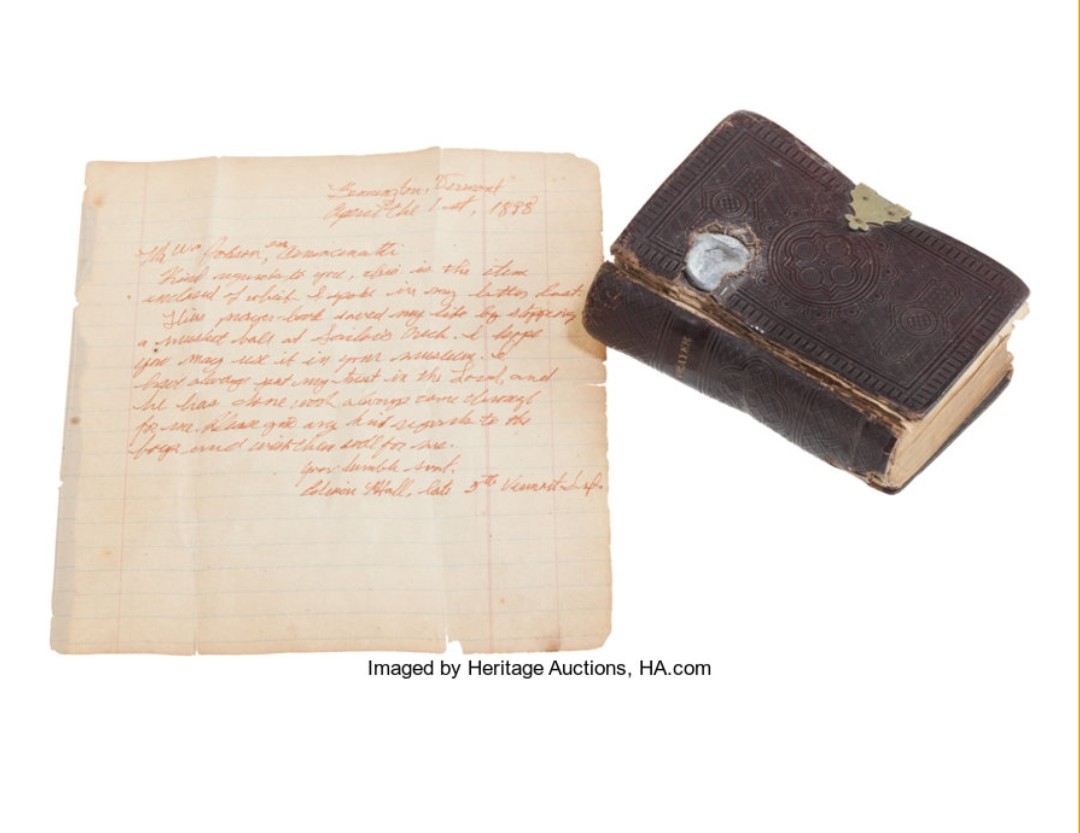 Vermont
April the 1st, 1888
Mr Wm
Kind regards to you, this is the item
enclosed of which I spoke in my letter last.
This prayer-book saved my life by stopping
a musket ball at Sailor's Creek. I hope
you may use it in your museum. I
have always put my trust in the Lord, and
he has done and always come through
for me. Please give my kind regards to the
boys and wish them well for me.
Your humble svnt.
Hall, late 5th Vermont Inf.
Imaged by Heritage Auctions, HA.com